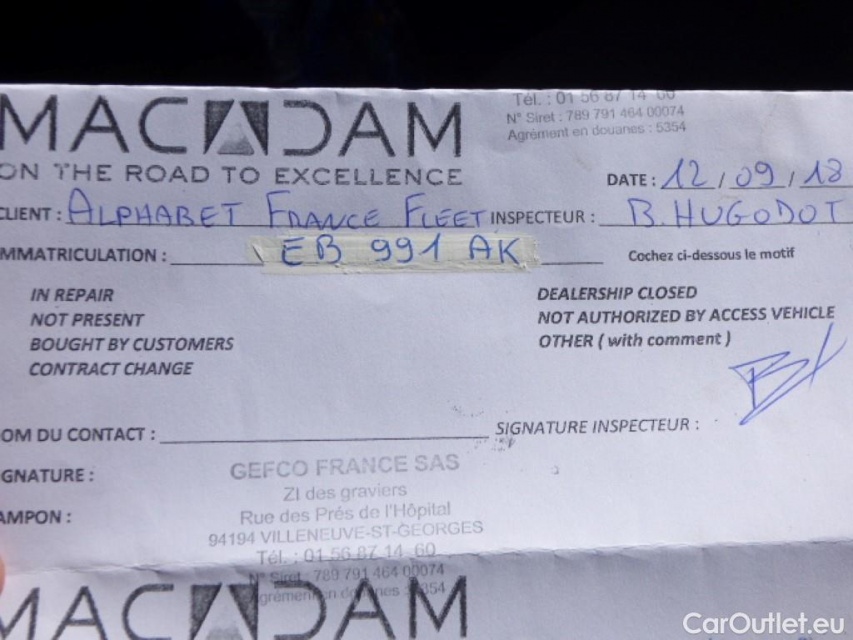 MACADAM
Tél. : 01 56 87 14 60
N° Siret : 789 791 464 00074
Agrément en douanes : 5354
ON THE ROAD TO EXCELLENCE
DATE : 12 / 09 / 18
CLIENT : ALPHABET FRANCE FLEET INSPECTEUR : B. HUGODOT
MMATRICULATION : EB 991 AK Cochez ci-dessous le motif
IN REPAIR
NOT PRESENT
BOUGHT BY CUSTOMERS
CONTRACT CHANGE
DEALERSHIP CLOSED
NOT AUTHORIZED BY ACCESS VEHICLE
OTHER ( with comment )
OM DU CONTACT :
SIGNATURE INSPECTEUR :
GNATURE :
AMPON :
GEFCO FRANCE SAS
ZI des graviers
Rue des Prés de l'Hôpital
94194 VILLENEUVE-ST-GEORGES
Tél. : 01 56 87 14 60
N° Siret : 789 791 464 00074
grément en douanes : 5354
MACADAM
CarOutlet.eu